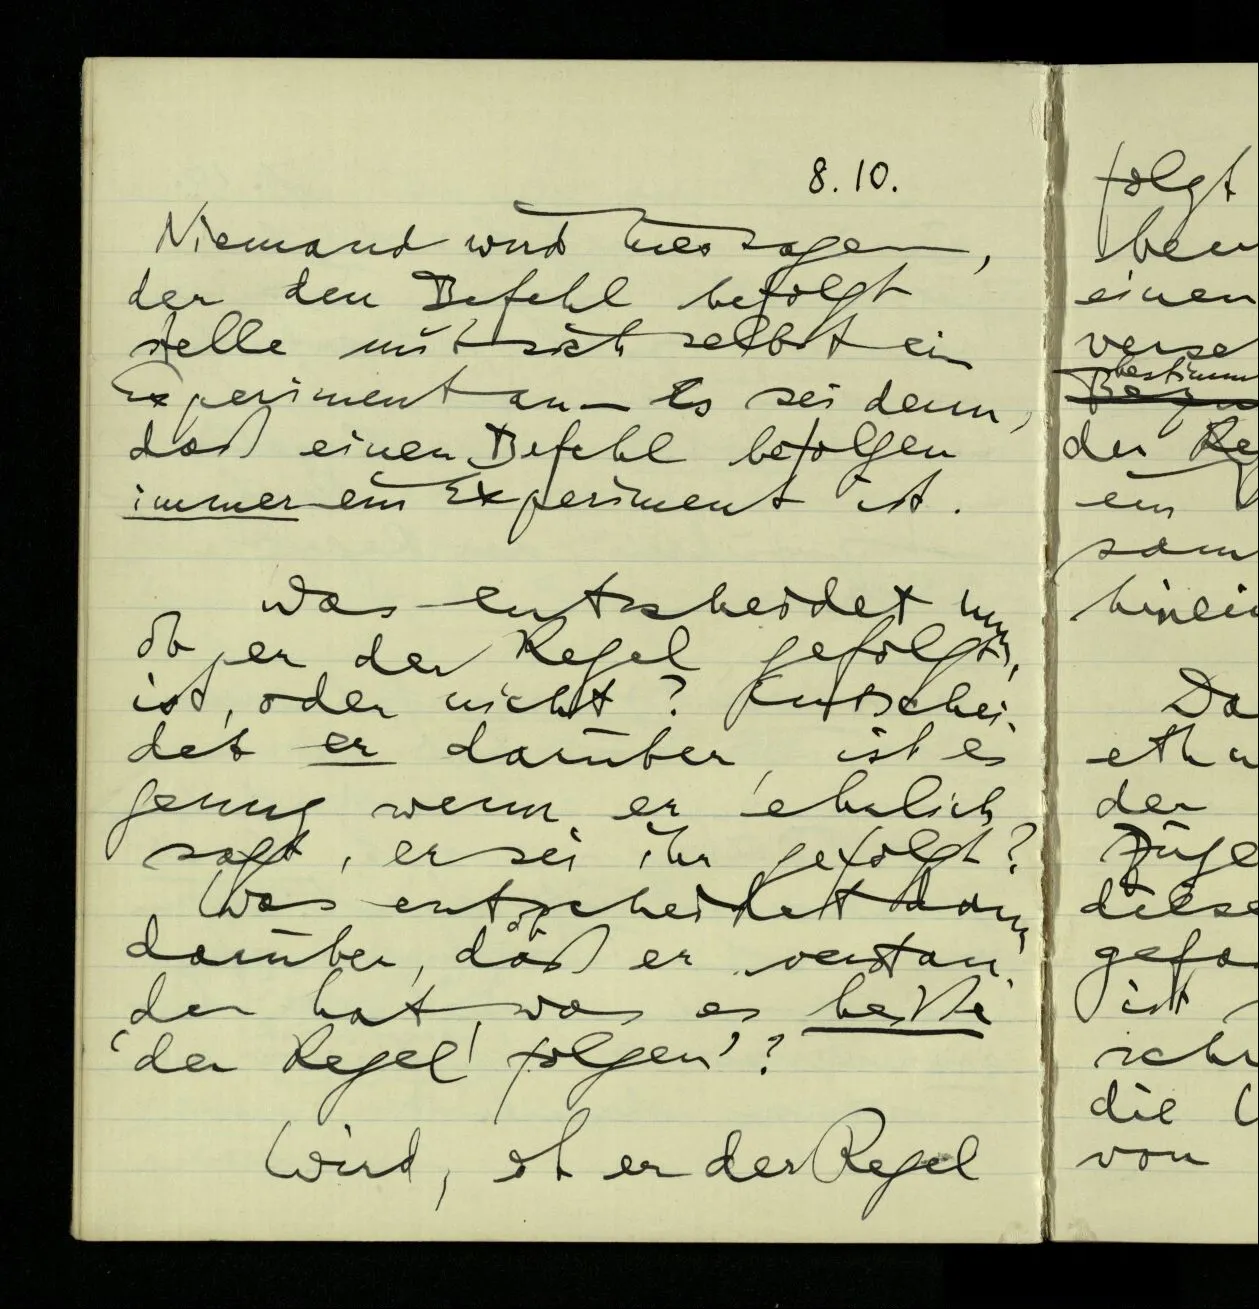 8.10.
Niemand wird hier sagen,
der den Befehl befolgt
stelle mit sich selbst ein
Experiment an – Es sei denn,
daß einen Befehl befolgen
immer ein Experiment ist.
Was entscheidet nun,
ob er der Regel gefolgt
ist, oder nicht? Entschei-
det er darüber, ist es
genug wenn er ehrlich
sagt, er sei ihr gefolgt?
Was entscheidet dann
ob
darüber, daß er verstan-
den hat, was es heiße
'der Regel folgen'?
Wird, ob er der Regel
folgt
einen
bestimm
der Reg
ein
hinein
der
diese
ist
die
von